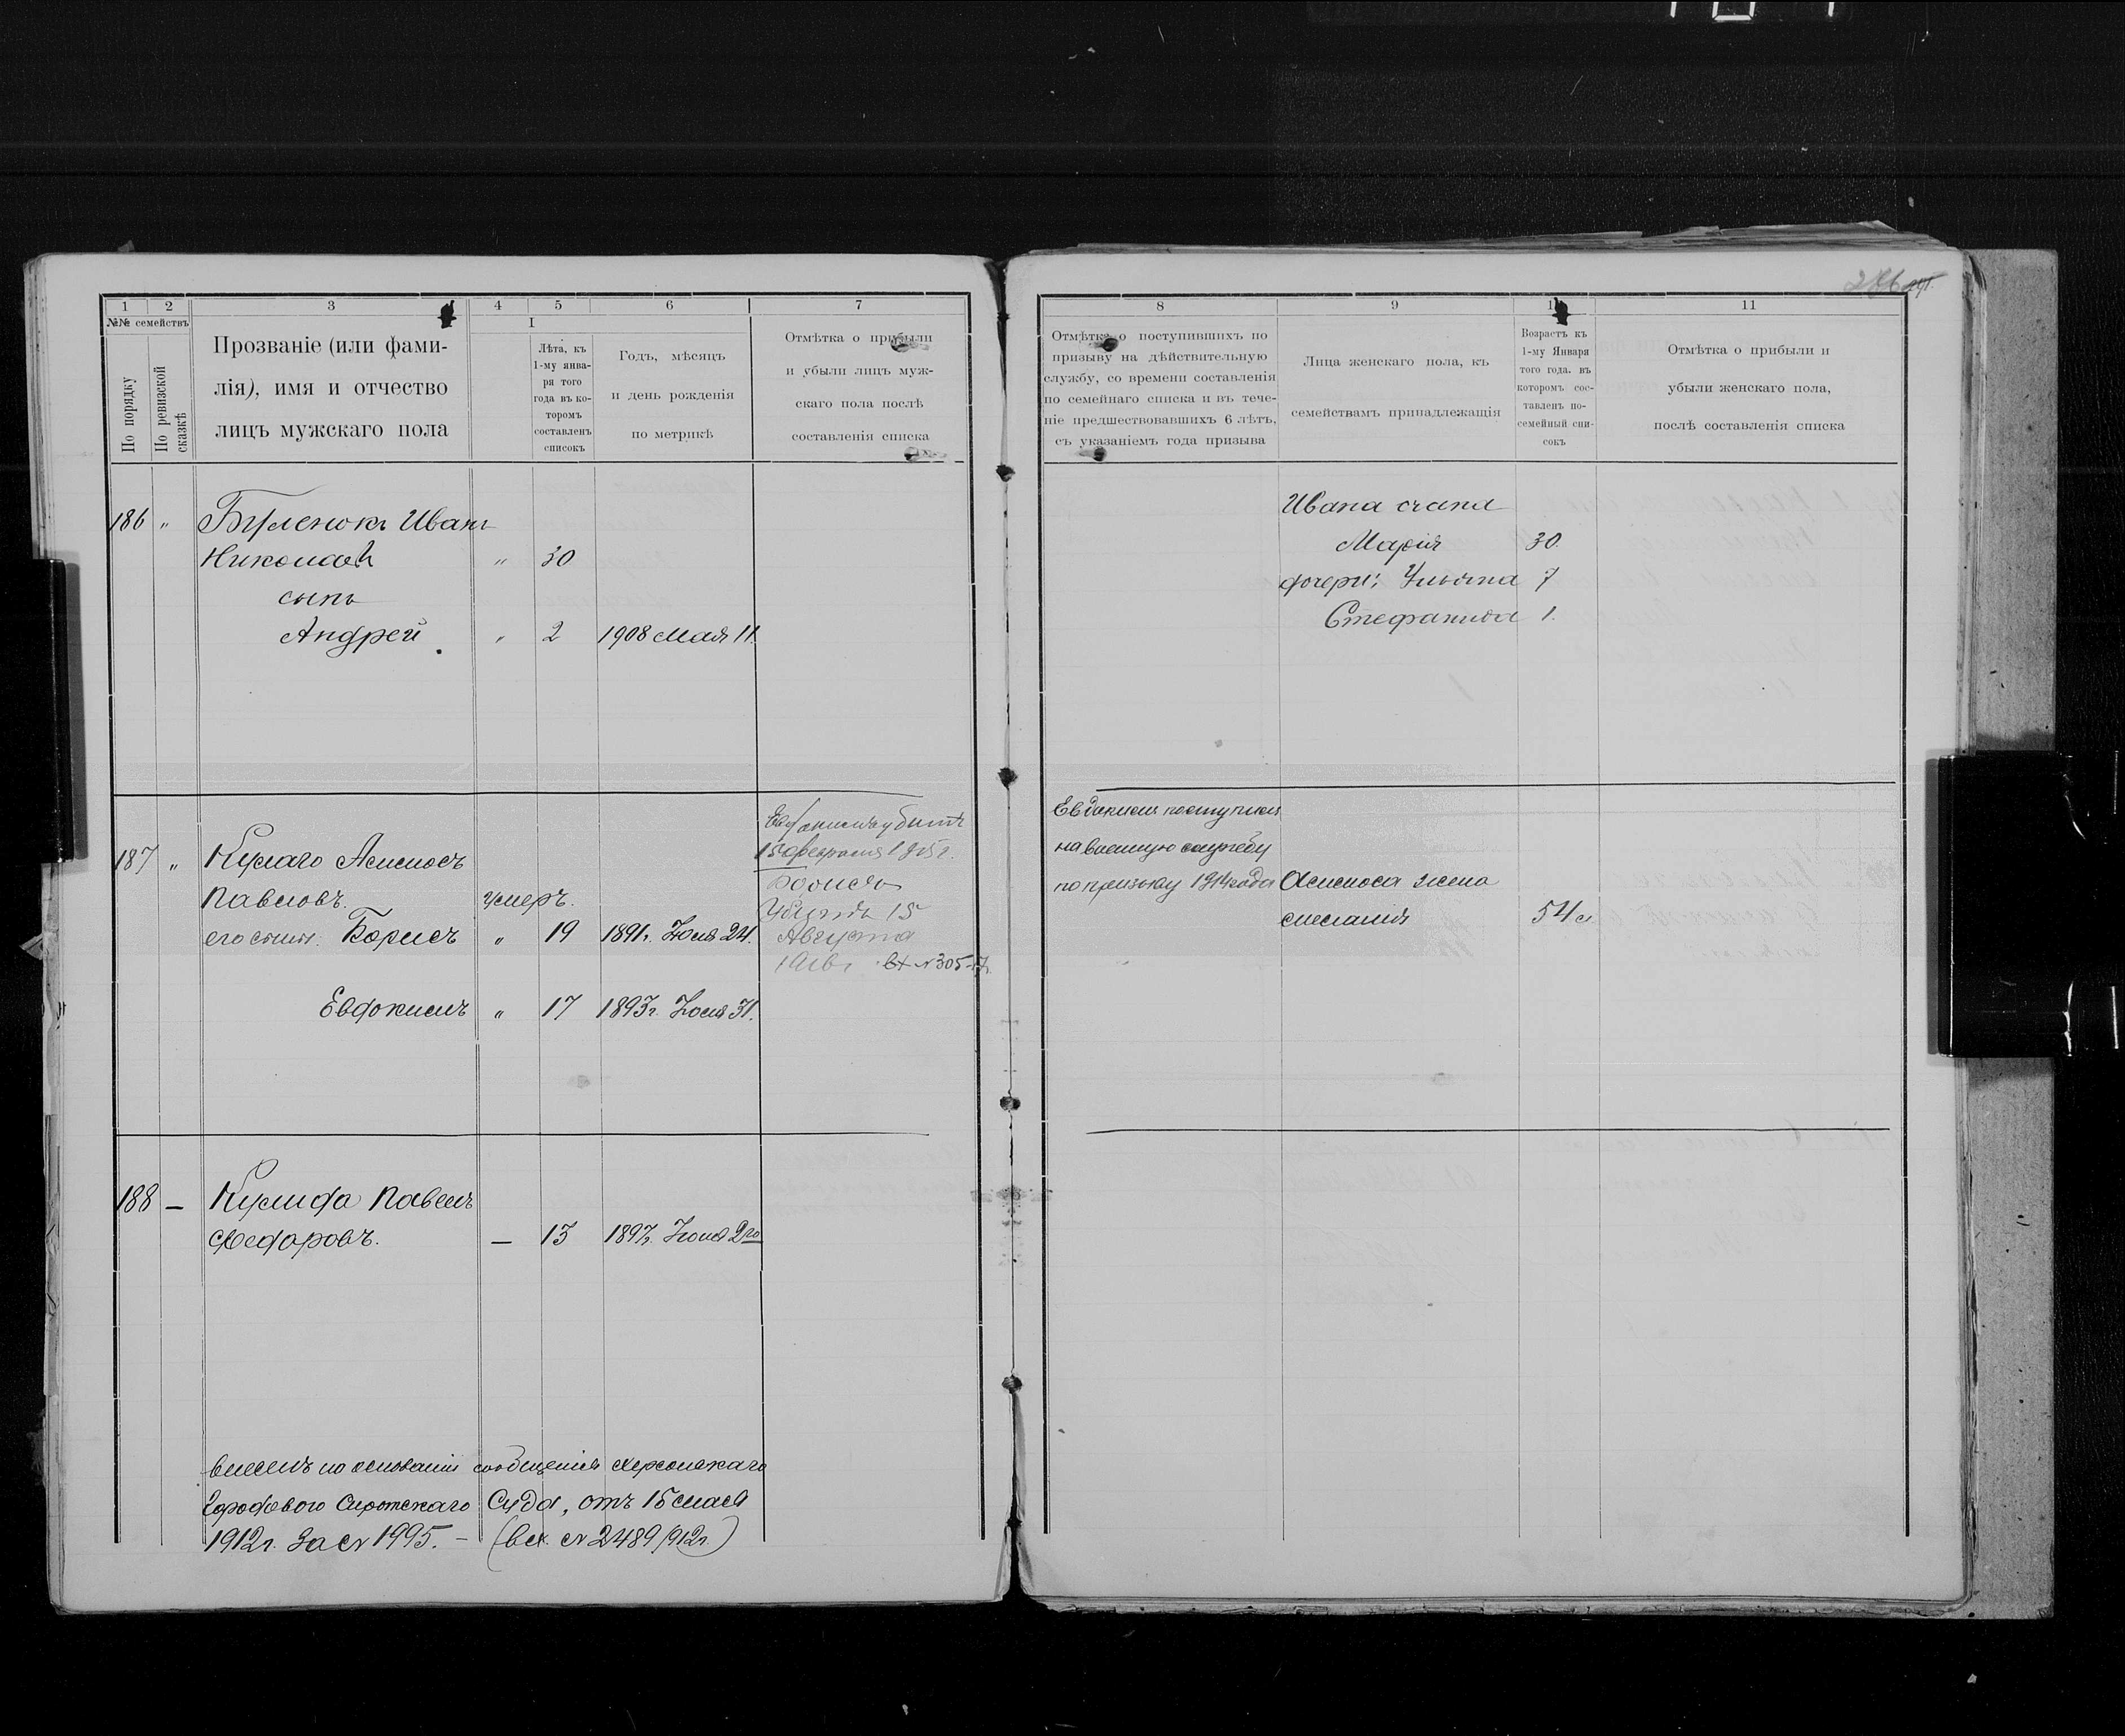 286
1 2 3 4 5 6 7
№№ семействъ
По порядку
По ревизской сказкѣ
Прозваніе (или фами-
лія), имя и отчество
лицъ мужскаго пола
I
Лѣта, къ
1-му янва-
ря того
года въ ко-
торомъ
составленъ
списокъ
Годъ, мѣсяцъ
и день рожденія
по метрикѣ
Отмѣтка о прибыли
и убыли лицъ муж-
скаго пола послѣ
составленія списка
186 " Иванъ
Николаев
" 30
сынъ
Андрей " 2 1908 Мая 11.
Евдокимъ убитъ
15 февраля 1915 г.
187 "
Павловъ. умеръ.
Борисъ
Убитъ 15
его сынъ: Борисъ " 19 1891 г. Июля 24. Августа
1916 г. вх №305-17г.
Евдокимъ " 17 1893 г. Июля 31.
188 — Павелъ
Федоровъ. — 13 1897 г. 2го
внесенъ на основаніи сообщенія Херсонскаго
Городового Сиротскаго Суда, отъ 15 мая
1912 г. за № 1995. — (вх. № 2489/912 г.)
8 9 10 11
Отмѣтка о поступившихъ по
призыву на дѣйствительную
службу, со времени составленія
по семейнаго списка и въ тече-
ніе предшествовавшихъ 6 лѣтъ,
съ указаніемъ года призыва
Лица женскаго пола, къ
семействамъ принадлежащія
Возрастъ къ
1-му Января
того года, въ
которомъ сос-
тавленъ по-
семейный спи-
сокъ
Отмѣтка о прибыли и
убыли женскаго пола,
послѣ составленія списка
Ивана жена
Марія 30
дочери: Ульяна 7
Стефанида 1.
Евдокимъ поступилъ
на военную службу
по призыву 1914 года жена
Меланія 54